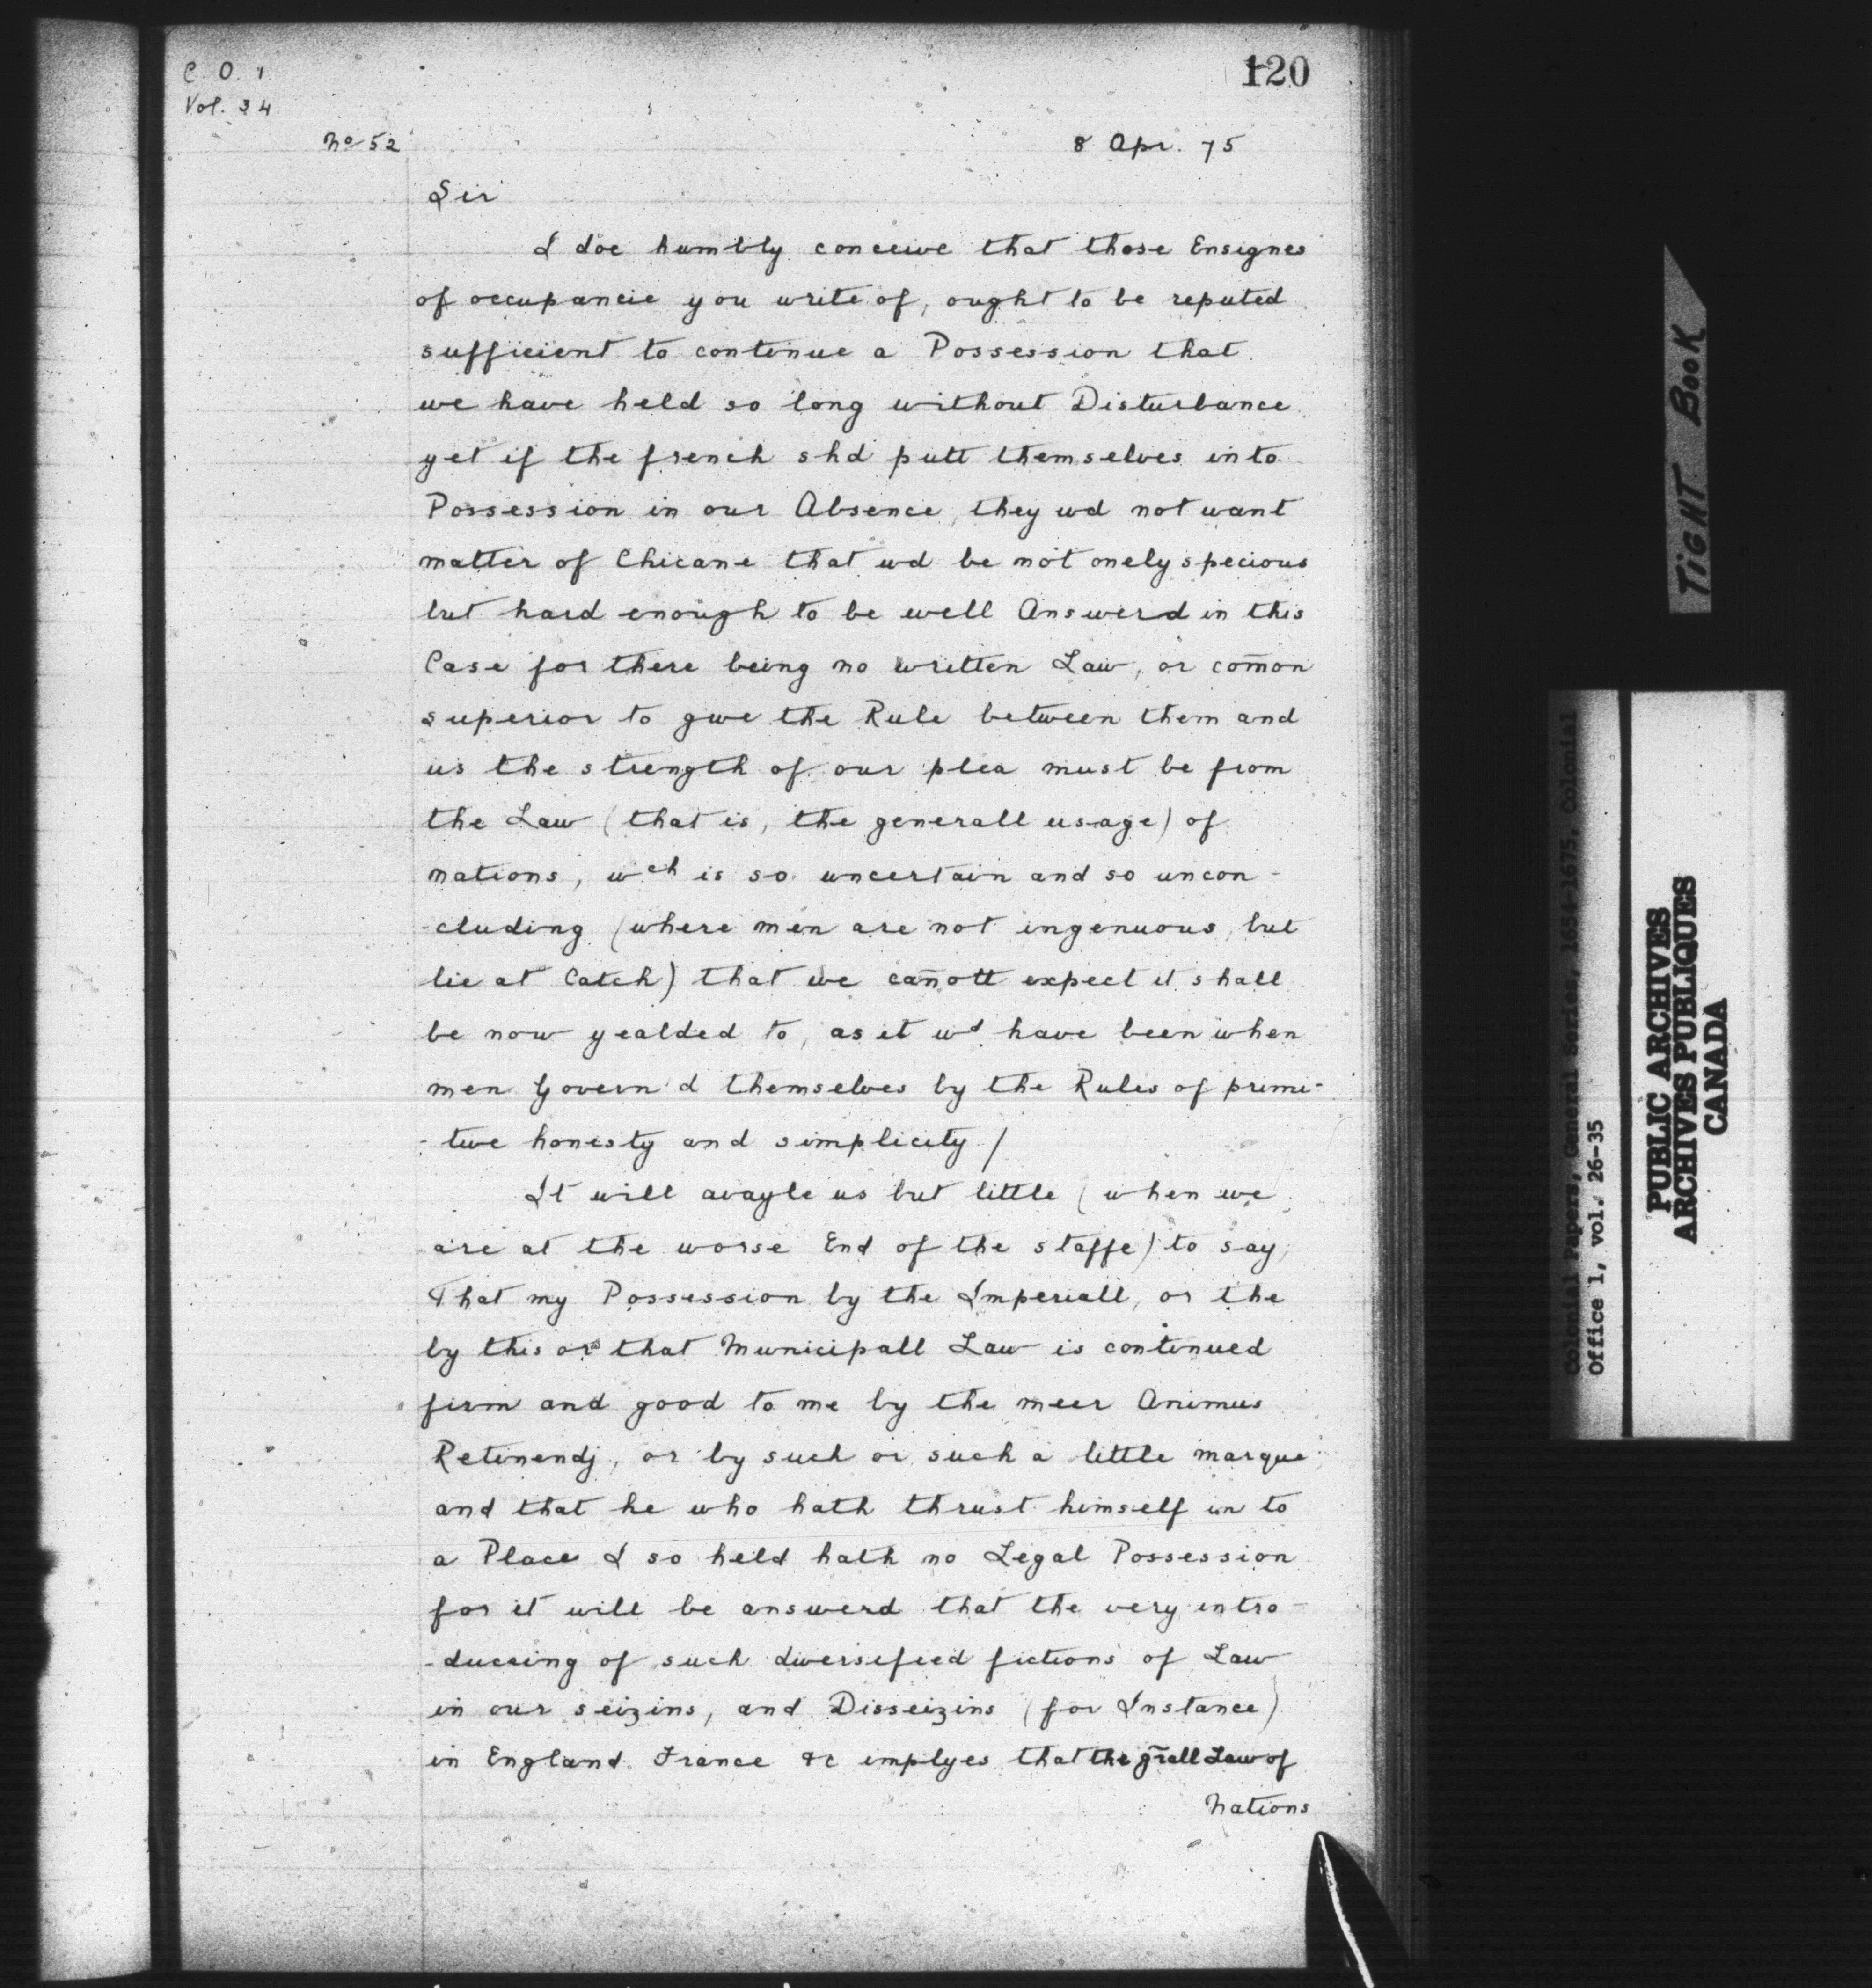 C. O. 1
Vol. 34
120
No 52
8 Apr. 75
Sir
I doe humbly conceive that those Ensignes
of occupancie you write of, ought to be reputed
sufficient to continue a Possession that
we have held so long without Disturbance
yet if the french shd putt themselves into
Possession in our Absence, they wd not want
matter of Chicane that wd be not onely specious
but hard enough to be well Answerd in this
Case for there being no written Law, or com̄on
superior to give the Rule between them and
us the strength of our plea must be from
the Law (that is, the generall usage) of
nations, wch is so uncertain and so uncon-
-cluding (where men are not ingenuous, but
lie at Catch) that we can̄ott expect it shall
be now yealded to, as it wd have been when
men Govern'd themselves by the Rules of primi-
-tive honesty and simplicity /
It will avayle us but little (when we
are at the worse End of the staffe) to say,
That my Possession by the Imperiall, or the
by this or that Municipall Law is continued
firm and good to me by the meer Animus
Retinendj, or by such or such a little marque
and that he who hath thrust himself in to
a Place I so held hath no Legal Possession
for it will be answerd that the very intro-
-duceing of such diversified fictions of Law
in our seizins, and Disseizins (for Instance)
in England France &c implyes that the gr̄all Law of
Nations
TIGHT BOOK
Colonial Papers, General Series, 1654-1675, Colonial
Office 1, vol. 26-35
PUBLIC ARCHIVES
ARCHIVES PUBLIQUES
CANADA